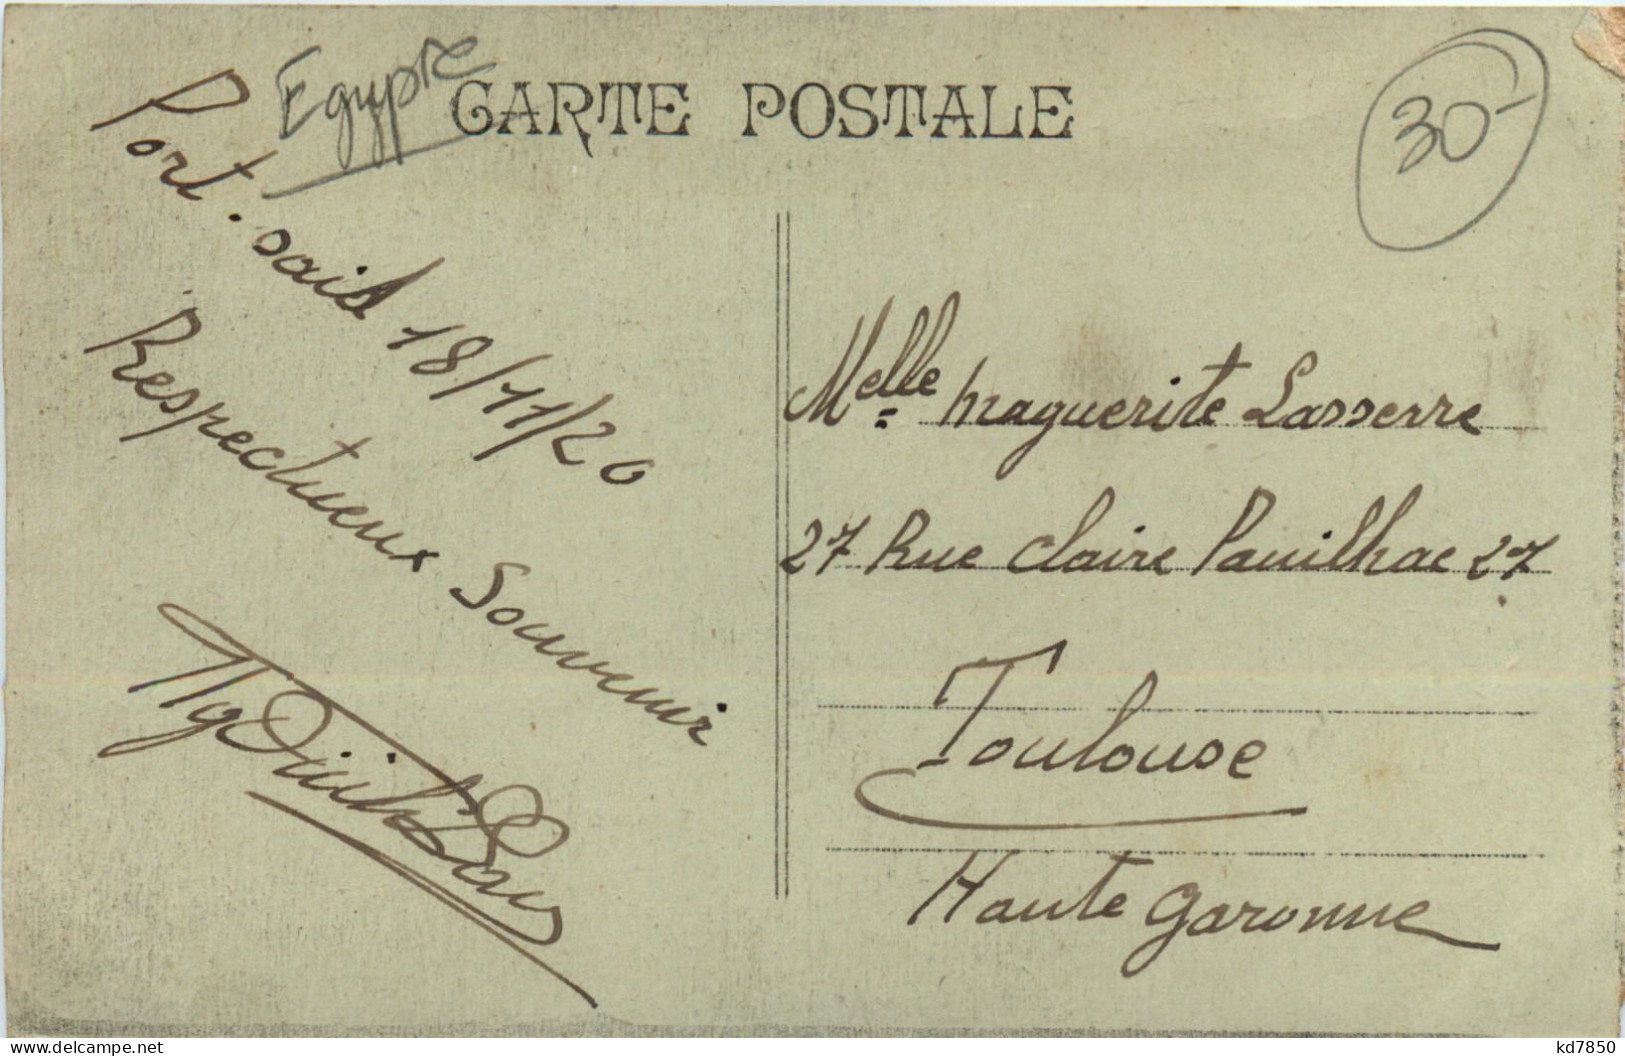 Egypte
CARTE POSTALE
30-
Port. Said 18/11/20
Respectueux Souvenir
Melle Maguerite Lasserre
27 Rue Claire Pauilhac 27
Toulouse
Haute Garonne
www.delcampe.net
kd7850